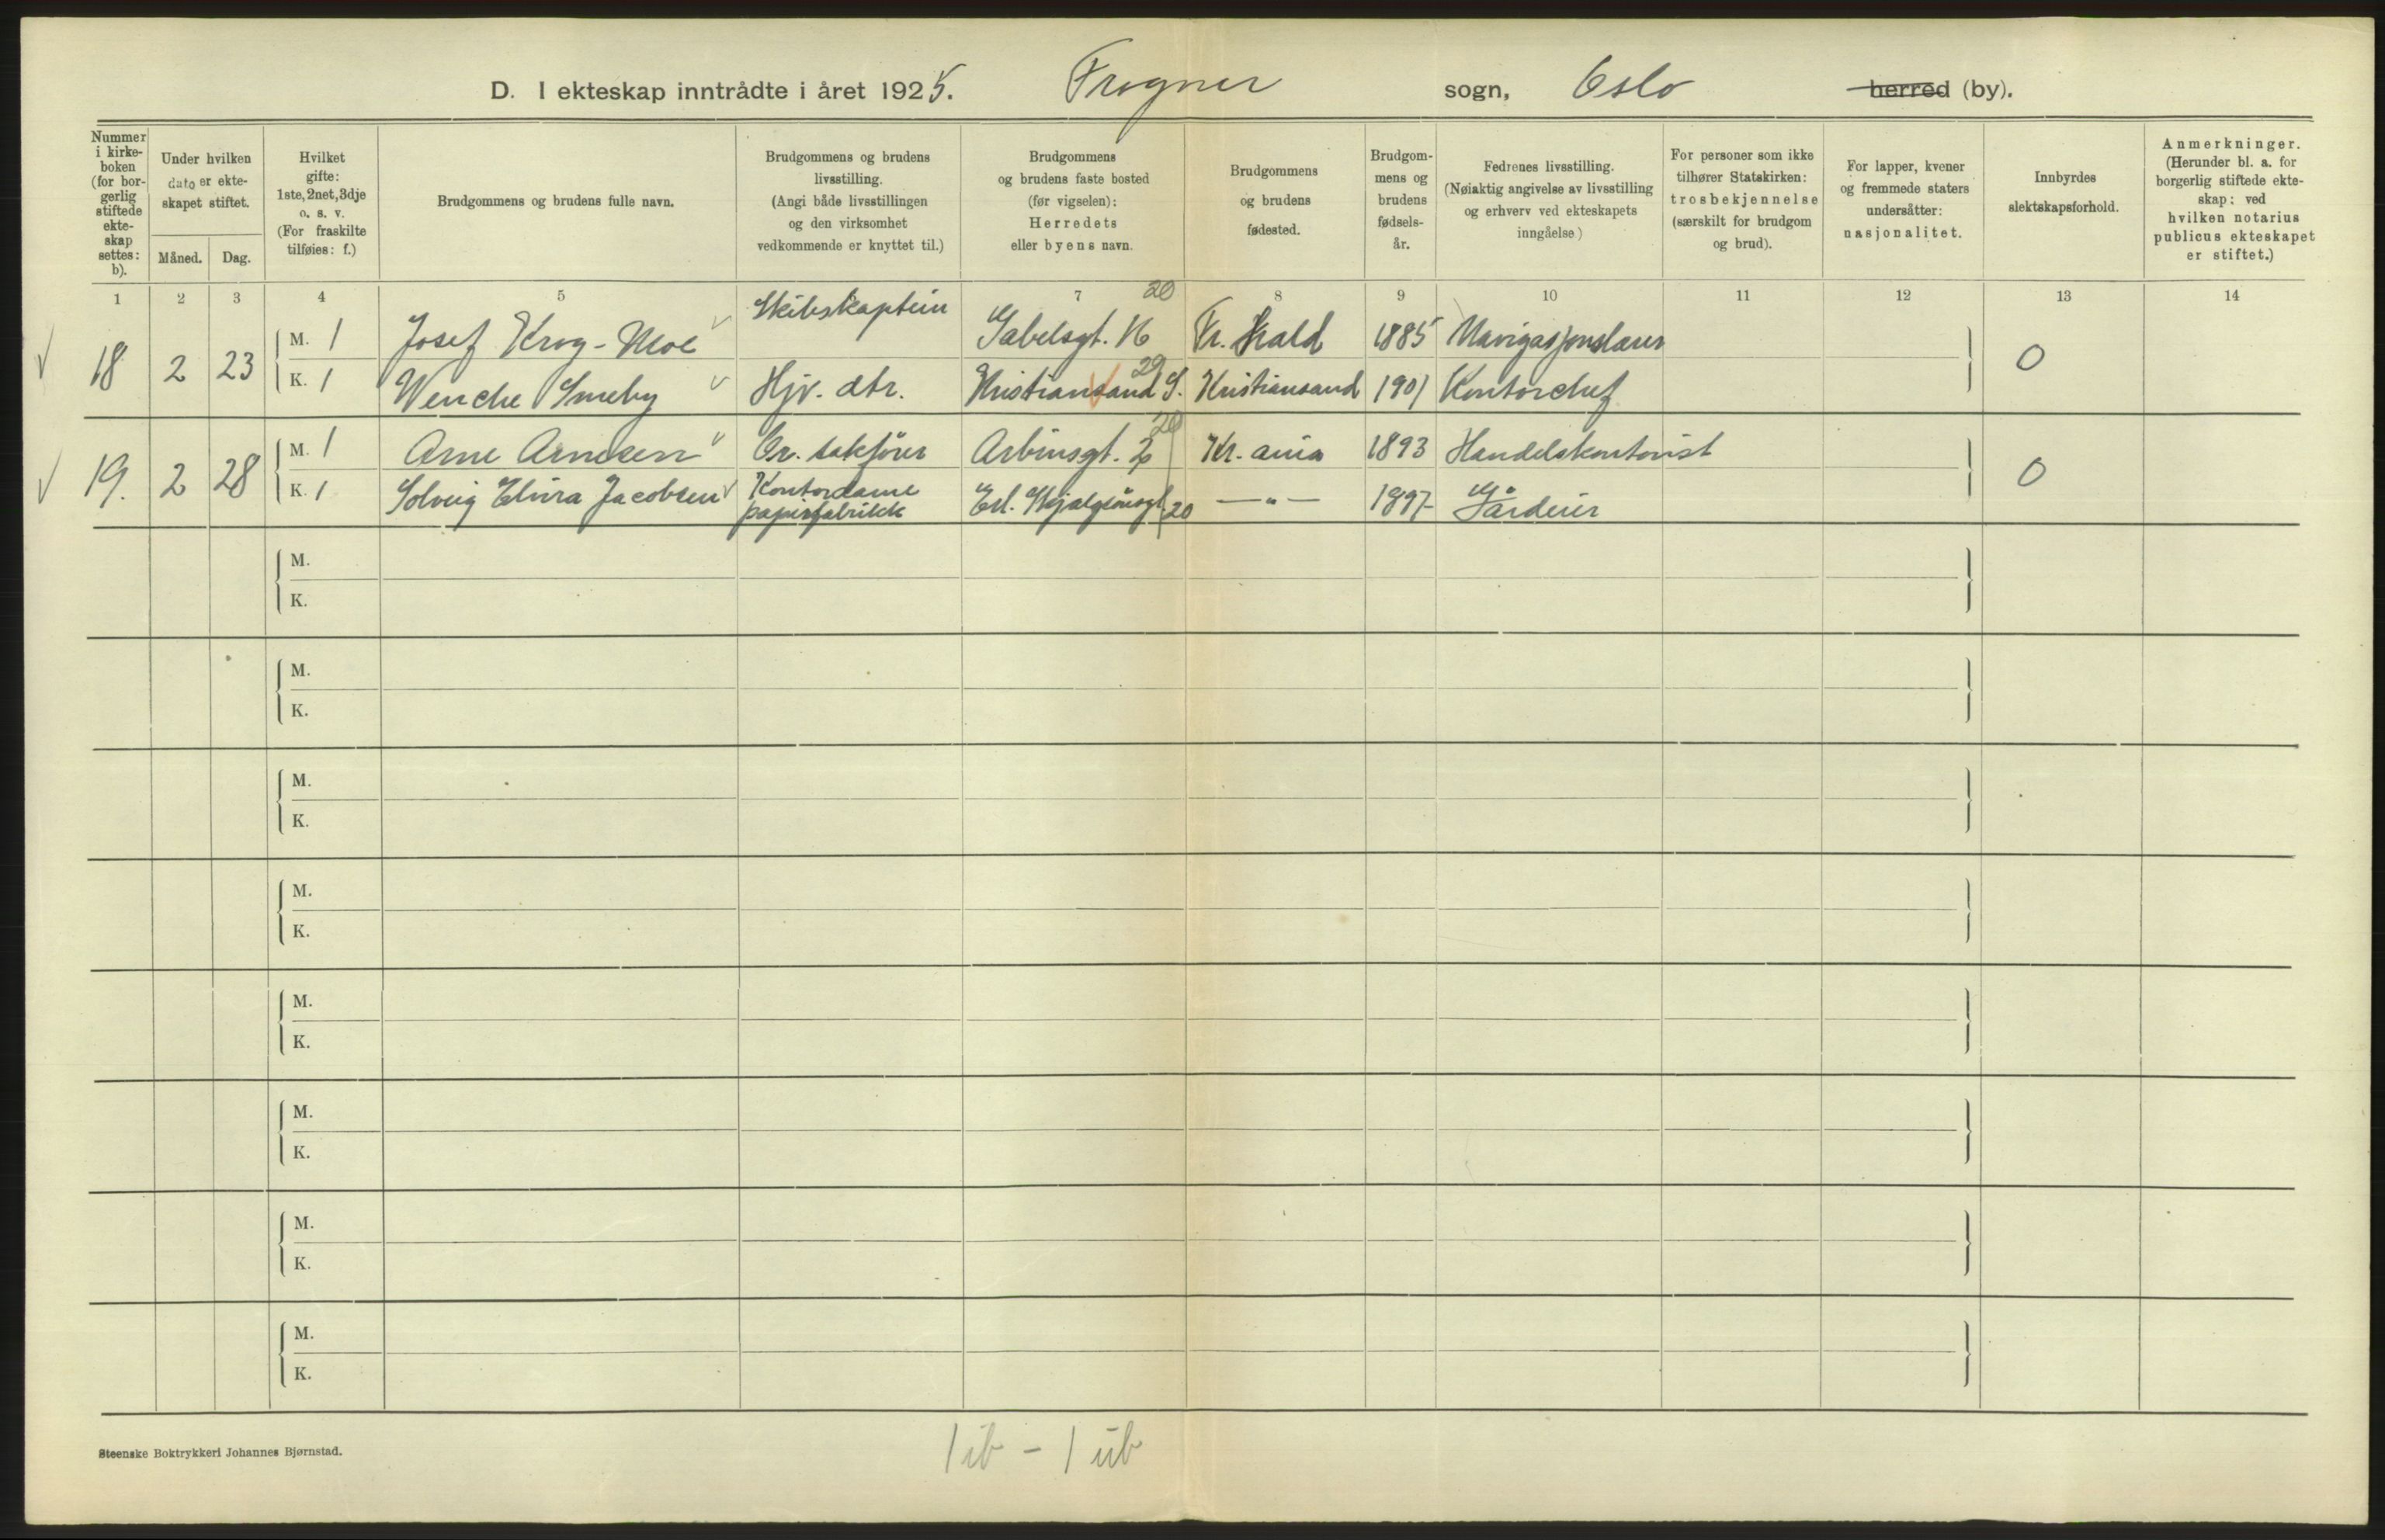 D. I ekteskap inntrådte i året 1925. Frogner sogn, Oslo herred (by).
Nummer i kirkeboken (for borgerlig stiftede ekteskap settes: b).
Under hvilken dato er ekteskapet stiftet.
Måned. Dag.
Hvilket gifte: 1ste, 2net, 3dje o. s. v. (For fraskilte tilføies: f.)
Brudgommens og brudens fulle navn.
Brudgommens og brudens livsstilling. (Angi både livsstillingen og den virksomhet vedkommende er knyttet til.)
Brudgommens og brudens faste bosted (før vigselen): Herredets eller byens navn.
Brudgommens og brudens fødested.
Brudgommens og brudens fødselsår.
Fedrenes livsstilling. (Nøiaktig angivelse av livsstilling og erhverv ved ekteskapets inngåelse)
For personer som ikke tilhører Statskirken: trosbekjennelse (særskilt for brudgom og brud).
For lapper, kvener og fremmede staters undersåtter: nasjonalitet.
Innbyrdes slektskapsforhold.
Anmerkninger. (Herunder bl. a. for borgerlig stiftede ekteskap: ved hvilken notarius publicus ekteskapet er stiftet.)
1 2 3 4 5 6 7 8 9 10 11 12 13 14
18 2 23 M. 1 Josef Krog-Moe Skibskaptein Gabelsgt. 16 20 Fr. Hald 1885 Navigasjonslærer 0
K. 1 Wenche Smeby Hjv. dtr. Kristiansand S. 29 Kristiansand 1901 Kontorchef
19. 2 28 M. 1 Arne Arnesen Or. sakfører Arbinsgt. 2 20 Kr. ania 1893 Handelskontorist 0
K. 1 Solveig Elvira Jacobsen Kontordame papirfabrikk Erl. Skjalgsønsgt. 20 —"— 1897 Gårdeier
M.
K.
M.
K.
M.
K.
M.
K.
M.
K.
M.
K.
M.
K.
M.
K.
Steenske Boktrykkeri Johannes Bjørnstad.
1 ib - 1 üb